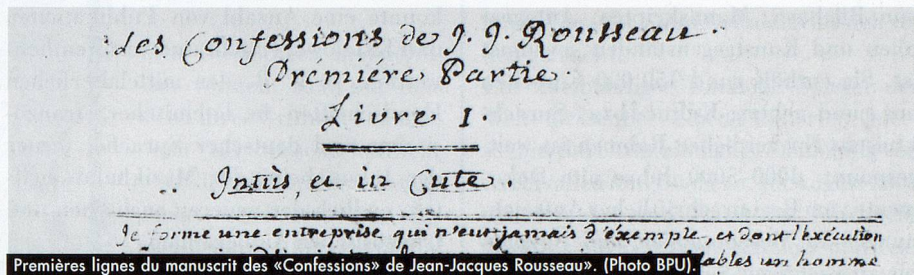 Les Confessions de J. J. Rousseau.
Prémiére Partie.
Livre 1.
Intùs et in Cute.
Je forme une entreprise qui n'eut jamais d'éxemple, et dont l'exécution
ables un homme
Premières lignes du manuscrit des «Confessions» de Jean-Jacques Rousseau». (Photo BPU).